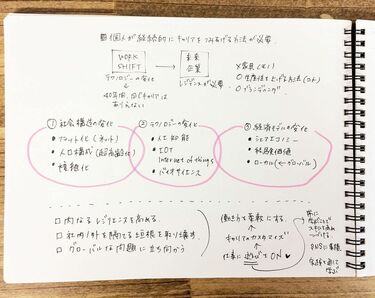 個人が継続的にキャリアをつみあげる方法が必要.
WORK
SHIFT
未来
企業
テクノロジーの変化
レジリエンスが必要.
40年間、同じキャリアは
ありえない
×家具(モノ)
○生産性を上げる方法(コト)
○ブランディング
① 社会構造の変化
・フラット化(ネット)
・人口構成(超高齢化)
・複雑化
② テクノロジーの変化
・人工知能
・IOT
Internet of things
・バイオサイエンス
③ 経済モデルの変化
・シェアエコノミー
・経験価値
・ローカル(←グローバル)
□内なるレジリエンスを高める.
□社内/外を隔てる垣根を取り壊す.
□グローバルな問題に立ち向かう
働き方を柔軟にする.
キャリアのカスタマイズ
仕事に遊び心でON
常に